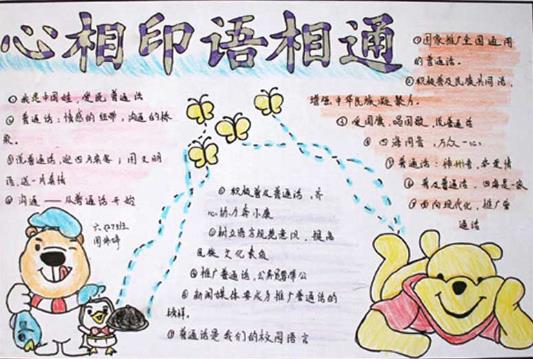 心相印语相通
①我是中国娃，爱说普通话
②普通话：情感的纽带，沟通的桥
梁。
③说普通话，迎四方宾客；用文明
语，送一片真情
④沟通——从普通话开始
六（2）班
①国家推广全国通用
的普通话。
②积极普及民族共同语，
增强中华民族凝聚力。
③爱国旗，唱国歌，说普通话
④四海同音，万众一心
⑤普通话：神州音，华夏情
⑥普及普通话，四海是一家
⑦面向现代化，推广普
通话
①积极普及普通话，齐
心协力奔小康
②树立语言规范意识，提高
民族文化素质
③推广普通话，公务员要带
④新闻媒体要成为推广普通话的
榜样。
⑤普通话是我们的校园语言